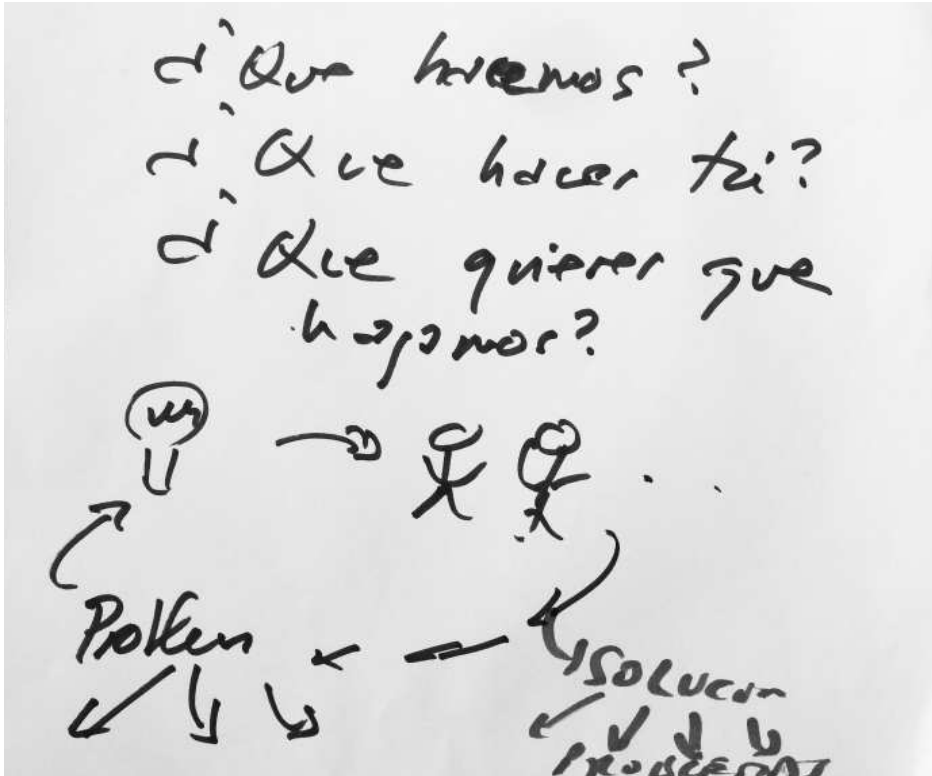 ¿Que hacemos?
¿Que hacer tú?
¿Que quieres que
hagamos?
Problem
Solucion